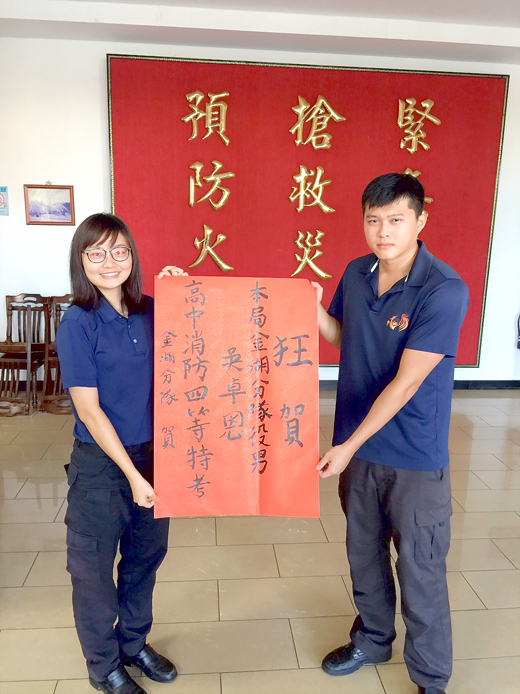 緊
搶救災
預防火
狂賀
本局金湖分隊役男
吳卓恩
高中消防四等特考
金湖分隊 賀